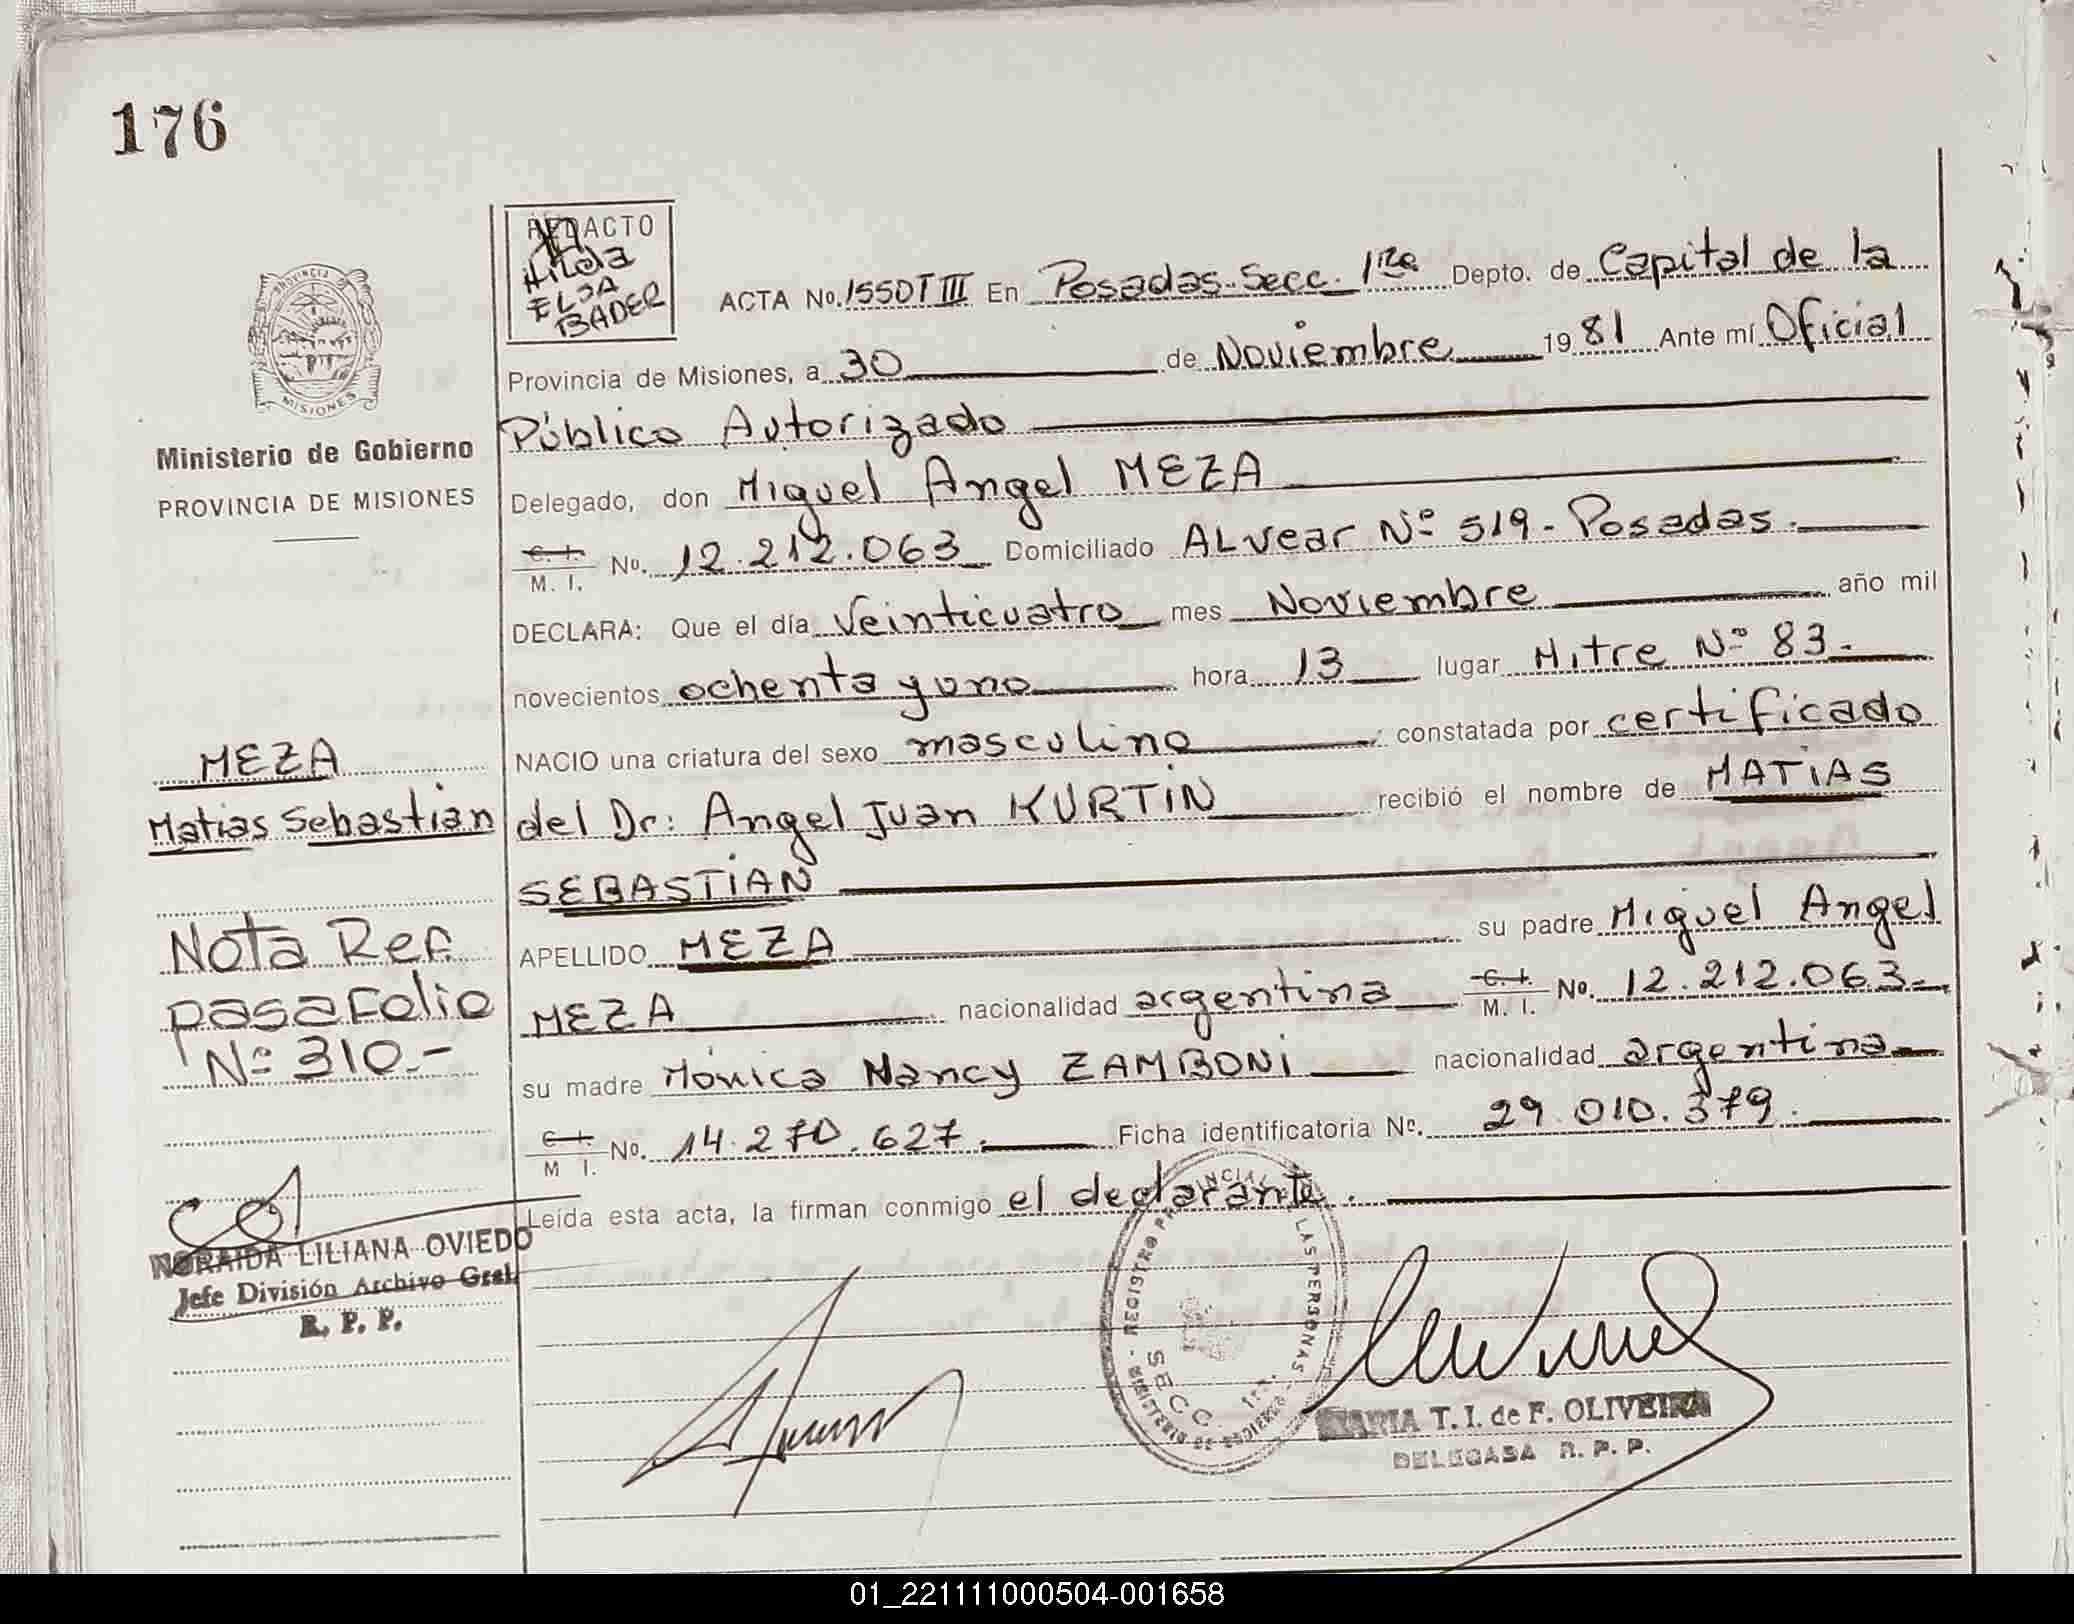 176
REDACTO
Hilda
ELSA
BADER
PROVINCIA DE
MISIONES
Ministerio de Gobierno
PROVINCIA DE MISIONES
ACTA No. 1550 T III En Posadas-Secc. 1ra Depto. de Capital de la
Provincia de Misiones, a 30 de Noviembre 1981 Ante mí Oficial
Público Autorizado
Delegado, don Miguel Angel MEZA
C. I. M. I. No. 12.212.063 Domiciliado ALvear Nº 519 - Posadas.
DECLARA: Que el día veinticuatro mes Noviembre año mil
novecientos ochenta y uno hora 13 lugar Mitre Nº 83.-
NACIO una criatura del sexo masculino constatada por certificado
del Dr: Angel Juan KURTIN recibió el nombre de MATIAS
SEBASTIAN
APELLIDO MEZA su padre Miguel Angel
MEZA nacionalidad argentina C. I. M. I. No. 12.212.063-
su madre Mónica Nancy ZAMBONI nacionalidad argentina
C. I. M I. No. 14.270.627. Ficha identificatoria No. 29.010.379.
Leída esta acta, la firman conmigo el declarante.
MEZA
Matias Sebastián
Nota Ref.
pasa Folio
Nº 310.-
NORAIDA LILIANA OVIEDO
Jefe División Archivo Gral.
R. P. P.
REGISTRO PROVINCIAL DE LAS PERSONAS
SECC. 1ra.
MARIA T. I. de F. OLIVEIRA
DELEGADA R. P. P.
01_221111000504-001658